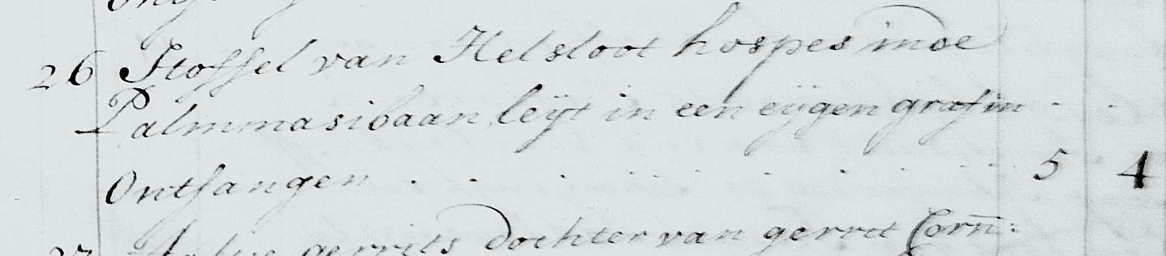 26 Stoffel van Helsloot hospes inde
Palmmasibaan leijt in een eijgen graf in
Ontfangen . . . . . . . . 5 4
gerrits dochter van gerrit Corn: